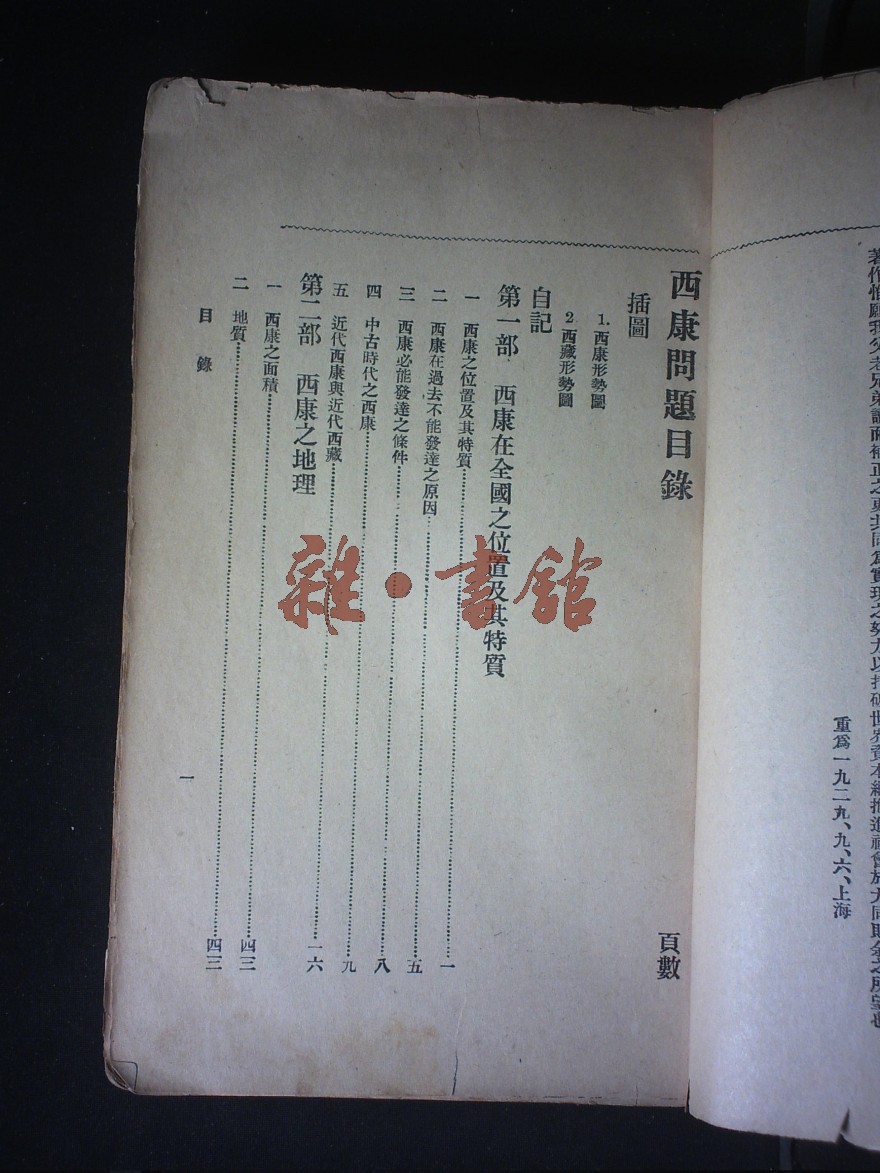 著作惟願我父老兄弟讀而補正之更共同為實現之努力以打破世界資本緦推進社會於大同財金之所望也
重爲一九二九、九、六、上海
西康問題目錄
頁數
插圖
1. 西康形勢圖
2. 西藏形勢圖
自記
第一部 西康在全國之位置及其特質
一 西康之位置及其特質……一
二 西康在過去不能發達之原因……五
三 西康必能發達之條件……八
四 中古時代之西康……九
五 近代西康與近代西藏……一六
第二部 西康之地理
一 西康之面積……四三
二 地質……四三
目錄
一
雜·書館